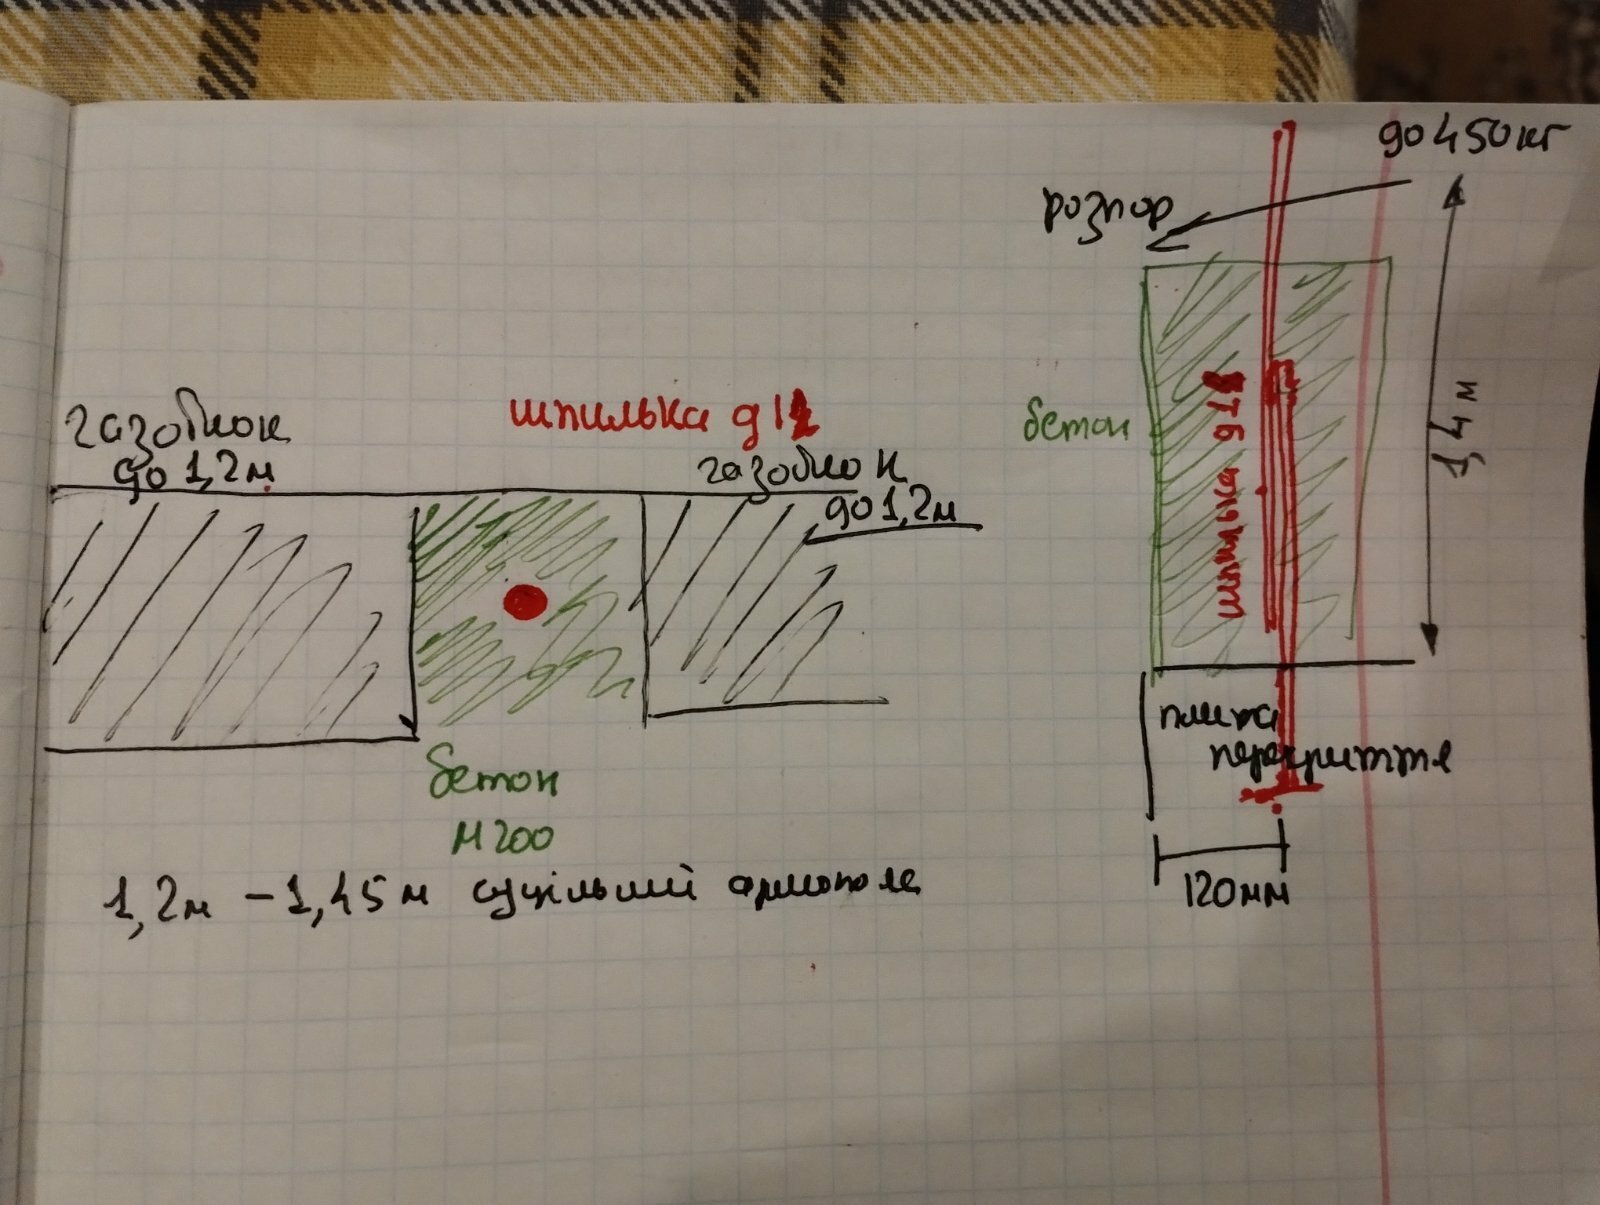 до 450кг
розпор
газоблок
до 1,2м
шпилька д12
газоблок
до 1,2м
бетон
шпилька д12
1,4м
плита
перекриття
бетон
М200
120мм
1,2м - 1,45м суцільний армопояс